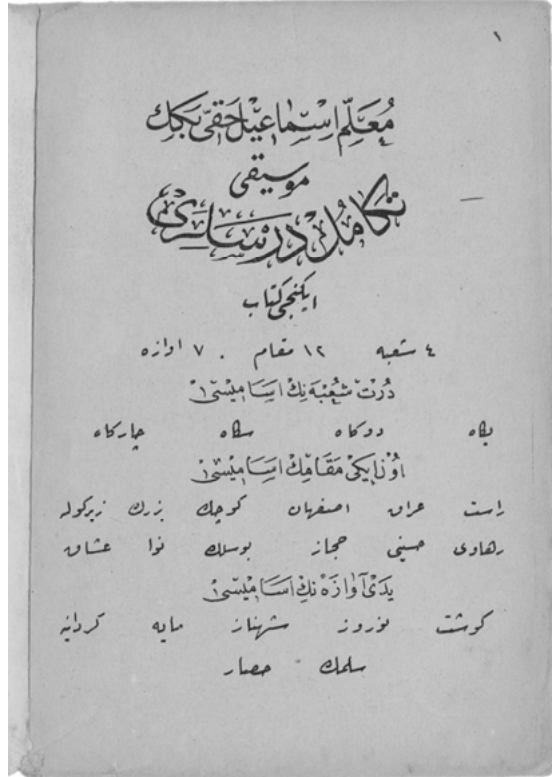 ١
معلم اسماعيل حقى بك‌ك
موسيقى
تكامل درسلرى
ايكنجى كتاب
٤ شعبه ١٢ مقام . ٧ اوازه
درت شعبه نك اساميسى
يكاه دوكاه سكاه چاركاه
اون ايكى مقامك اساميسى
راست عراق اصفهان كوچك بزرك زيركوله
رهاوى حسينى حجاز بوسلك نوا عشاق
يدى آوازه نك اساميسى
كوشت نوروز شهناز مايه كردانيه
سلمك حصار